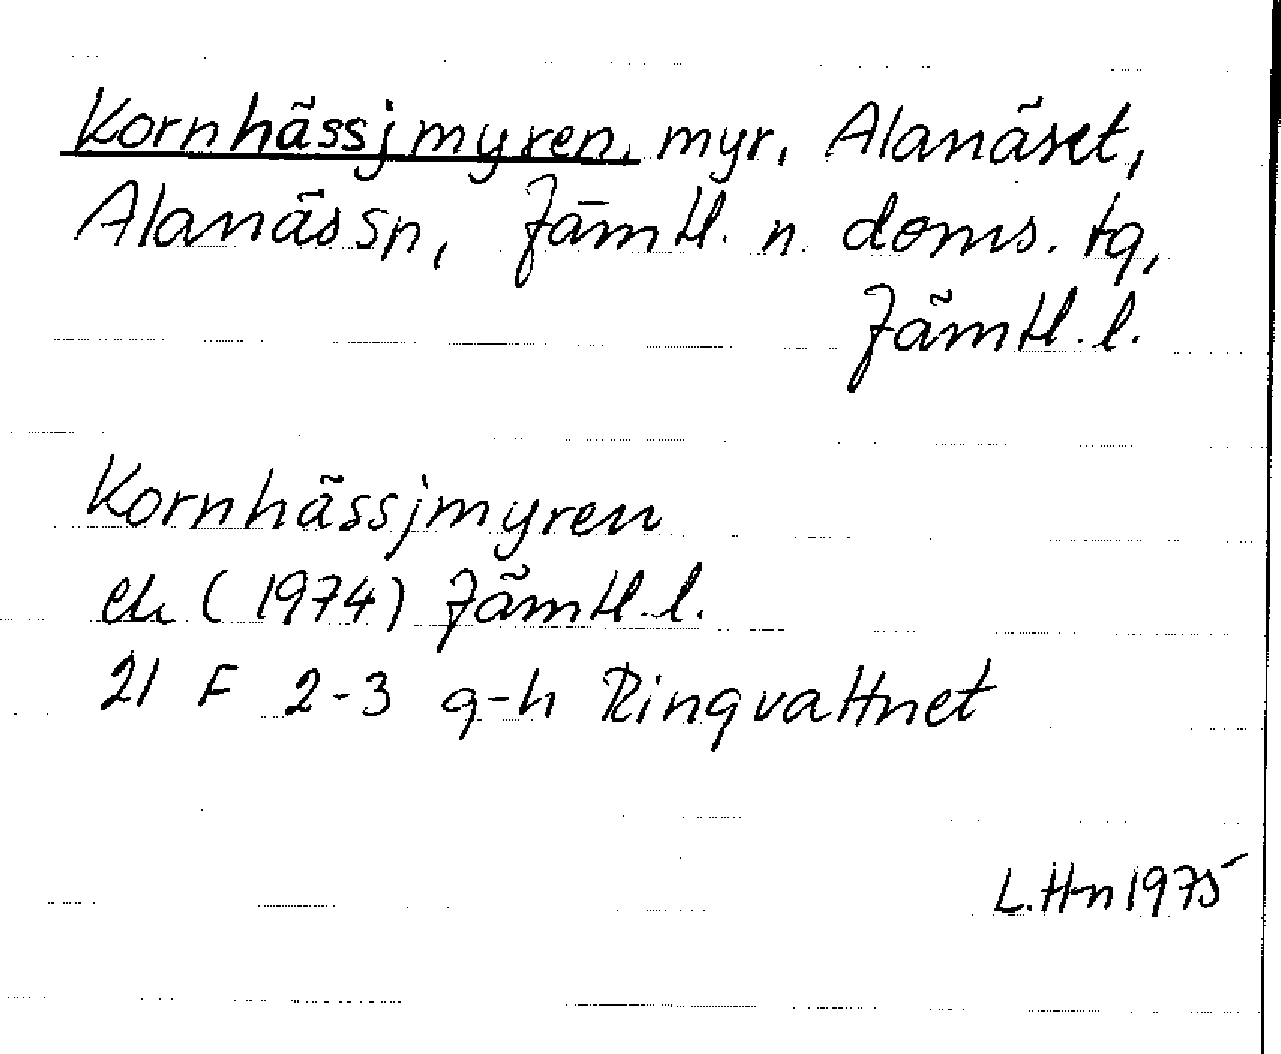 Kornhässjmyren, myr, Alanäset,
Alanäs sn, Jämtl. n. doms. tg,
Jämtl. l.
Kornhässjmyren
ek (1974) Jämtl. l.
21 F 2-3 g-h Ringvattnet
L. H-n 1975